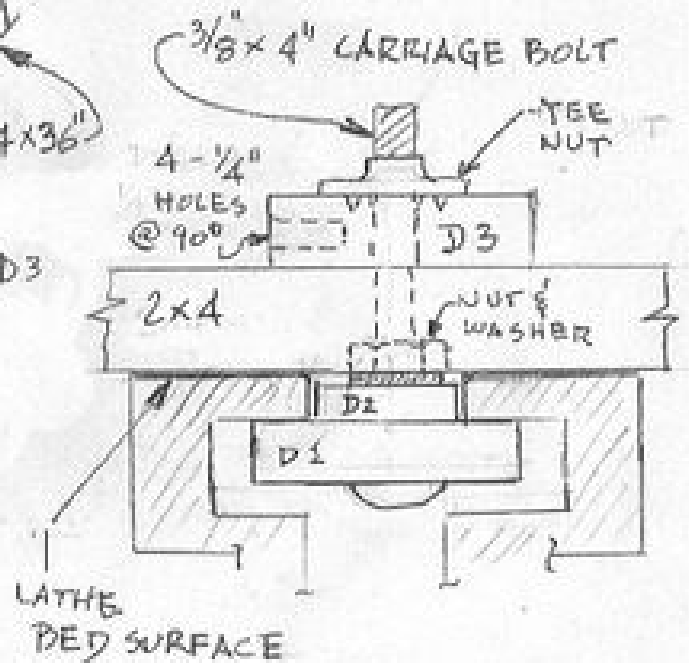 3/8" x 4" CARRIAGE BOLT
TEE
NUT
4 x 36"
4 - 1/4"
HOLES
@ 90°
D3
D3
2x4
NUT &
WASHER
D2
D1
LATHE
BED SURFACE